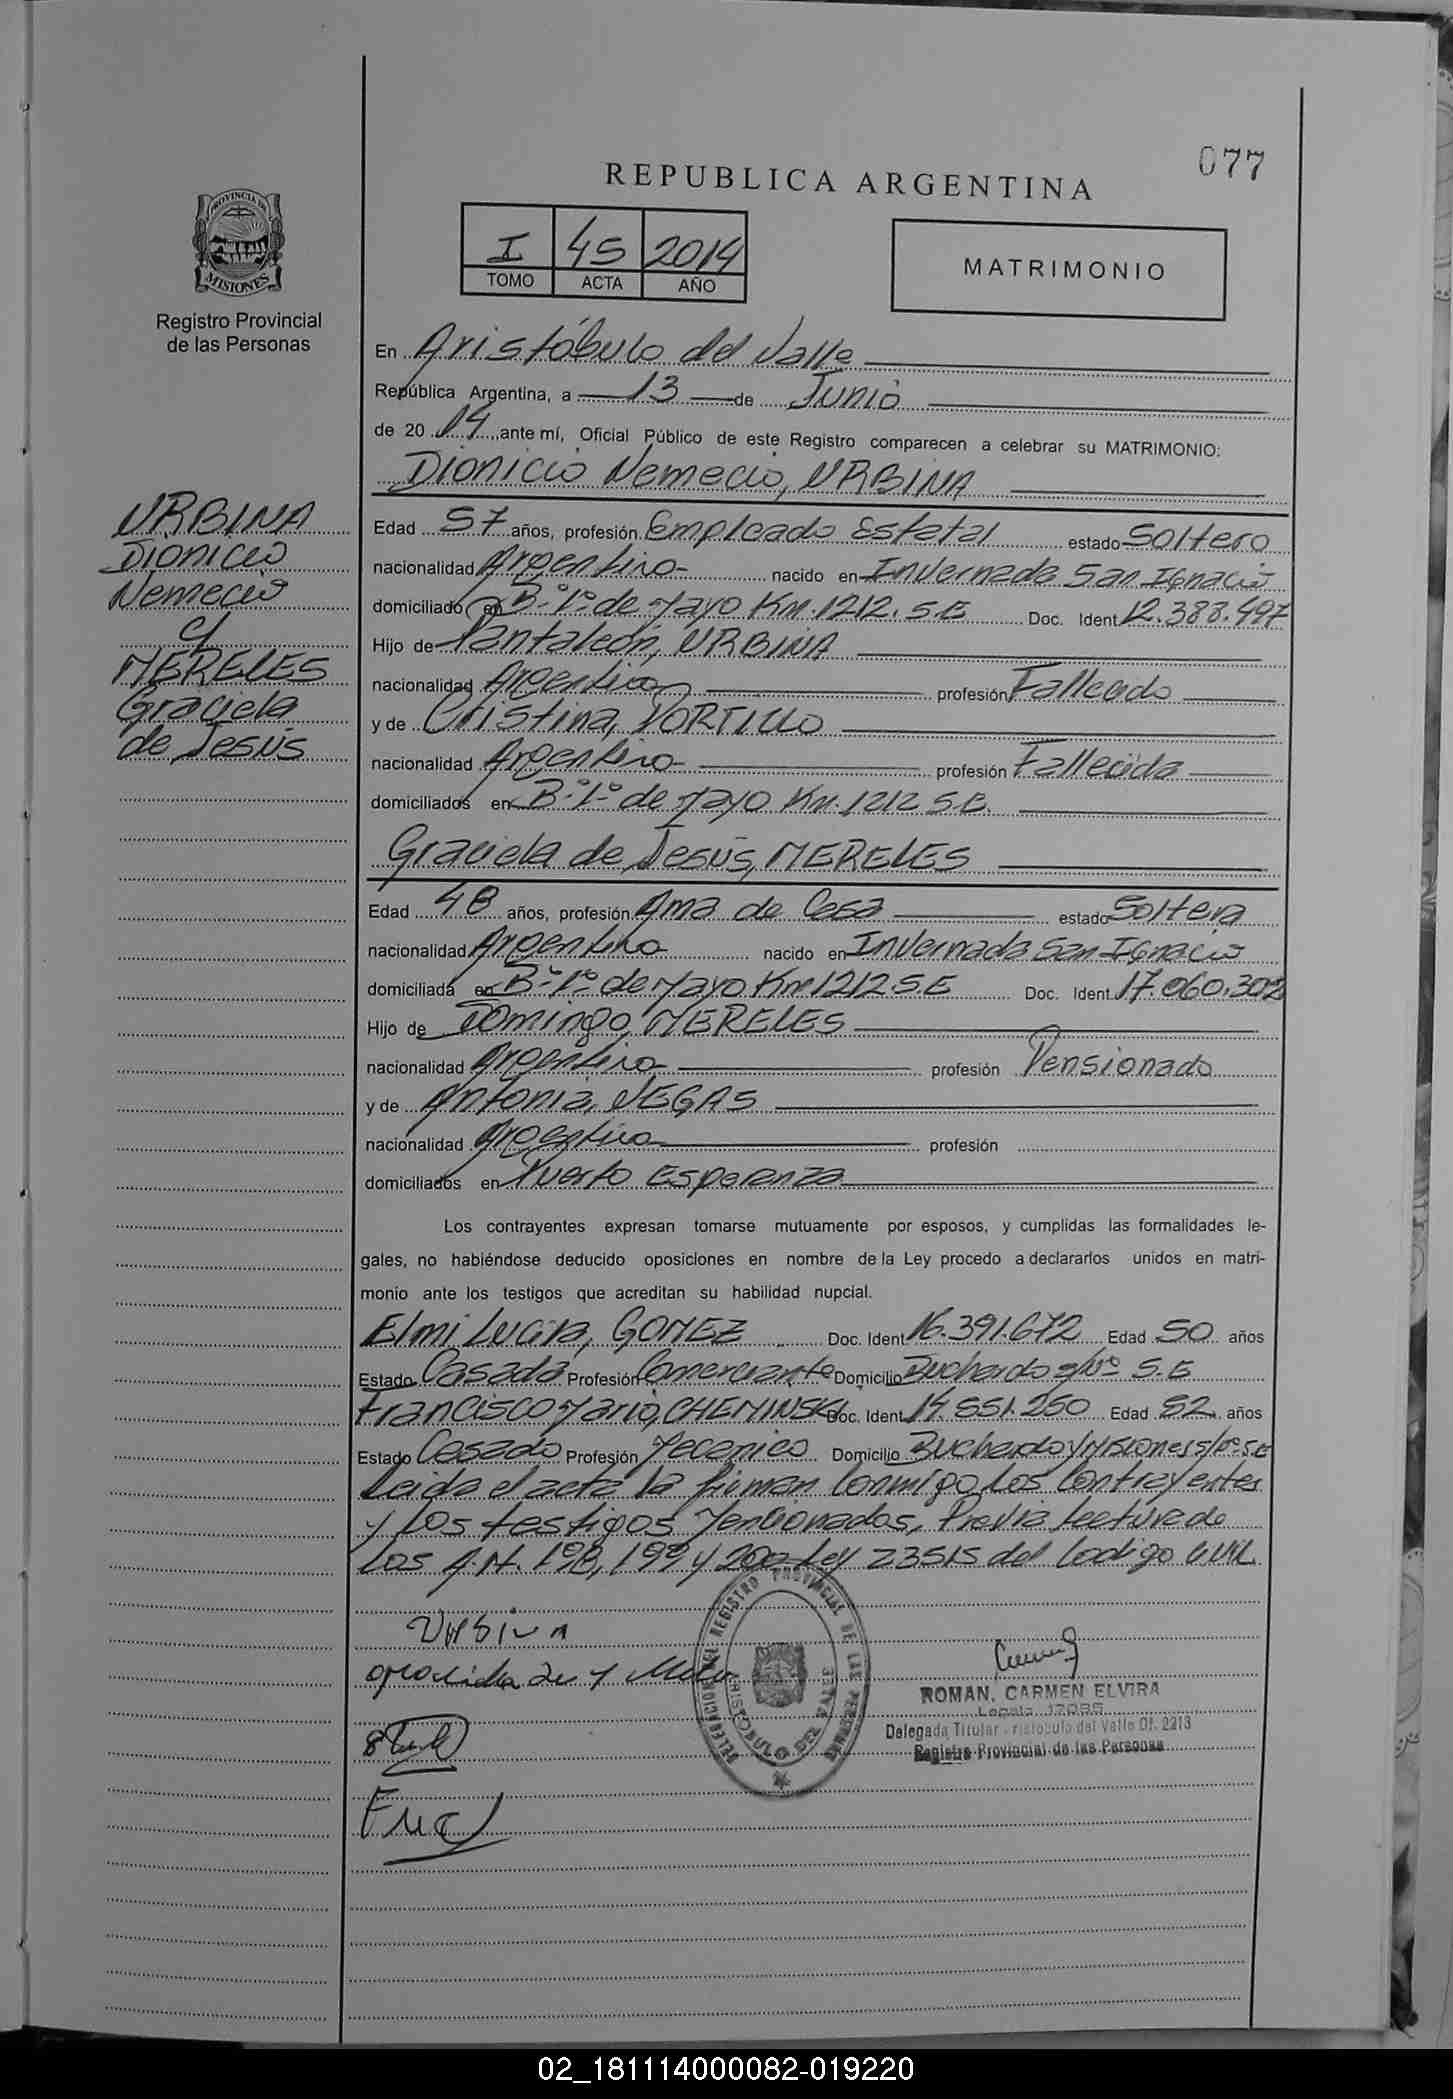 077
REPUBLICA ARGENTINA
PROVINCIA DE
MISIONES
Registro Provincial
de las Personas
I 45 2014
TOMO ACTA AÑO
MATRIMONIO
En Aristóbulo del Valle
República Argentina, a 13 de Junio
de 20 14 ante mí, Oficial Público de este Registro comparecen a celebrar su MATRIMONIO:
Dionicio Nemecio, URBINA
URBINA
Dionicio
Nemecio
y
MERELES
Graciela
de Jesús
Edad 57 años, profesión Empleado Estatal estado Soltero
nacionalidad Argentina nacido en Invernada San Ignacio
domiciliado en B.º 1º de Mayo Km. 1212. S.E Doc. Ident 12.388.497
Hijo de Pantaleón, URBINA
nacionalidad Argentina profesión Fallecido
y de Cristina, PORTILLO
nacionalidad Argentina profesión Fallecida
domiciliados en B.º 1º de Mayo Km. 1212 S.E.
Graciela de Jesús, MERELES
Edad 48 años, profesión Ama de Casa estado Soltera
nacionalidad Argentina nacido en Invernada San Ignacio
domiciliada en B.º 1º de Mayo Km 1212. S.E Doc. Ident 17.060.302
Hijo de Domingo, MERELES
nacionalidad Argentina profesión Pensionado
y de Antonia, VEGAS
nacionalidad Argentina profesión
domiciliados en Puerto Esperanza
Los contrayentes expresan tomarse mutuamente por esposos, y cumplidas las formalidades le-
gales, no habiéndose deducido oposiciones en nombre de la Ley procedo a declararlos unidos en matri-
monio ante los testigos que acreditan su habilidad nupcial.
Elmi Lucila, GOMEZ Doc. Ident 16.391.672 Edad 50 años
Estado Casada Profesión Comerciante Domicilio Buchardo s/nº S.E
Francisco Mario, CHEMINSKI Doc. Ident 14.551.250 Edad 52 años
Estado Casado Profesión Mecanico Domicilio Buchardo y Misiones s/nº S.E
Leida el acta la firman conmigo los Contrayentes
y los testigos Mencionados, Previa lectura de
los Art. 198, 199 y 200 Ley 23515 del Codigo Civil
Urbina
DELEGACION DEL REGISTRO PROVINCIAL DE LAS PERSONAS
ARISTOBULO DEL VALLE
ROMAN, CARMEN ELVIRA
Delegada Titular Aristobulo del Valle Of. 2213
Registro Provincial de las Personas
02_181114000082-019220